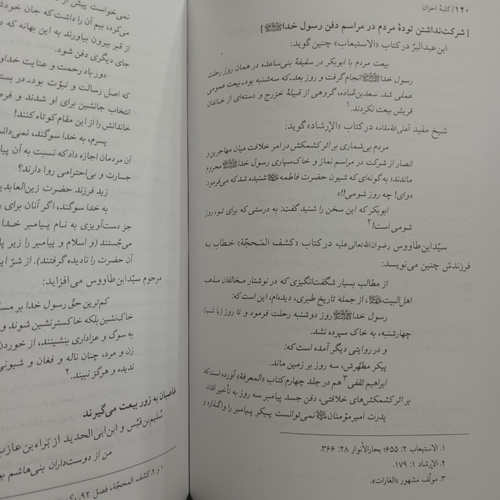 ۱۲۰ / کلبهٔ احزان
[شرکت‌نداشتن تودهٔ مردم در مراسم دفن رسول خدا ﷺ]
ابن‌عبدالبرّ در کتاب «الاستیعاب» چنین گوید:
بیعت مردم با ابوبکر در سقیفهٔ بنی‌ساعده در همان روز رحلت
رسول خدا ﷺ انجام گرفت و روز بعد که سه‌شنبه بود، بیعت عمومی
عملی شد. سعدبن‌عباده، گروهی از قبیلهٔ خزرج و دسته‌ای از خاندان
قریش بیعت نکردند.۱
شیخ مفید در کتاب «الإرشاد» گوید:
مردم بی‌شماری بر اثر کشمکش در امر خلافت میان مهاجرین و
انصار از شرکت در مراسم نماز و خاک‌سپاری رسول خدا ﷺ محروم
ماندند؛ به‌گونه‌ای که شیون حضرت فاطمه شنیده شد که می‌فرمود:
«وای! چه روز شومی!!»
ابوبکر که این سخن را شنید گفت: به درستی که برای تو، روز
شومی است!۲
سیّد ابن‌طاووس رضوان‌الله‌تعالی‌علیه در کتاب «کشف المَحجّة» خطاب به
فرزندش چنین می‌نویسد:
از مطالب بسیار شگفت‌انگیزی که در نوشتار مخالفان مذهب
اهل‌البیت، از جمله تاریخ طبری، دیده‌ام، این است که:
رسول خدا ﷺ روز دوشنبه رحلت فرمود و تا روز (یا شب)
چهارشنبه، به خاک سپرده نشد.
و در روایتی دیگر آمده است که:
پیکر مطهّرش، سه روز بر زمین ماند.
ابراهیم ثقفی۳ هم در جلد چهارم کتاب «المعرفة» آورده است که:
بر اثر کشمکش‌های خلافتی، دفن جسد پیامبر سه روز به تأخیر افتاد.
پدرت امیرمؤمنان نمی‌توانست پیکر پیامبر را واگذارد و
۱. الاستیعاب ۲: ۶۵۵؛ بحارالأنوار ۲۸: ۳۶۶.
۲. الإرشاد ۱: ۱۷۹.
۳. مؤلّف مشهور «الغارات».
نمی‌خواست پیش از
می‌کرد، بیم آن را داشت که جان خود
از قبر بیرون بیاورند به این بهانه که
جای دیگری دفن شود.
دور باد رحمت و عنایت خداو
که اصل رسالت و نبوّت بود، در بستر
انتخاب جانشین برای او شدند و
خاندانش را از این مقام کوتاه کنند!
پسرم، به خدا سوگند، نمی‌دانم
آن مردمان اجازه داد که نسبت به آن
جسارت و بی‌احترامی روا دارند؟
زید فرزند حضرت زین‌العابدین
به خدا سوگند، اگر آنان برای
جز دست‌آویزی به نام پیامبر خدا
می‌جُستند (و اسلام و پیامبر را زیر
آن حضرت را نادیده گرفتند). از شرّ
مرحوم سیّدابن‌طاووس می‌افزاید:
کم‌ترین حقّ رسول خدا بر
خاک‌نشین بلکه خاکسترنشین شوند و
به سوگ و عزاداری بنشینند، از خوردن
زن و مرد، چنان ناله و فغان و شیونی
ندیده و هرگز نبیند.۲
غاصبان به زور بیعت می‌گیرند
سُلیم بن قیس و ابن‌ابی‌الحدید از بَراء بن عازب
من از دوست‌داران بنی‌هاشم بو
۱ و ۲. کشف المحجّة، فصل ۹۲